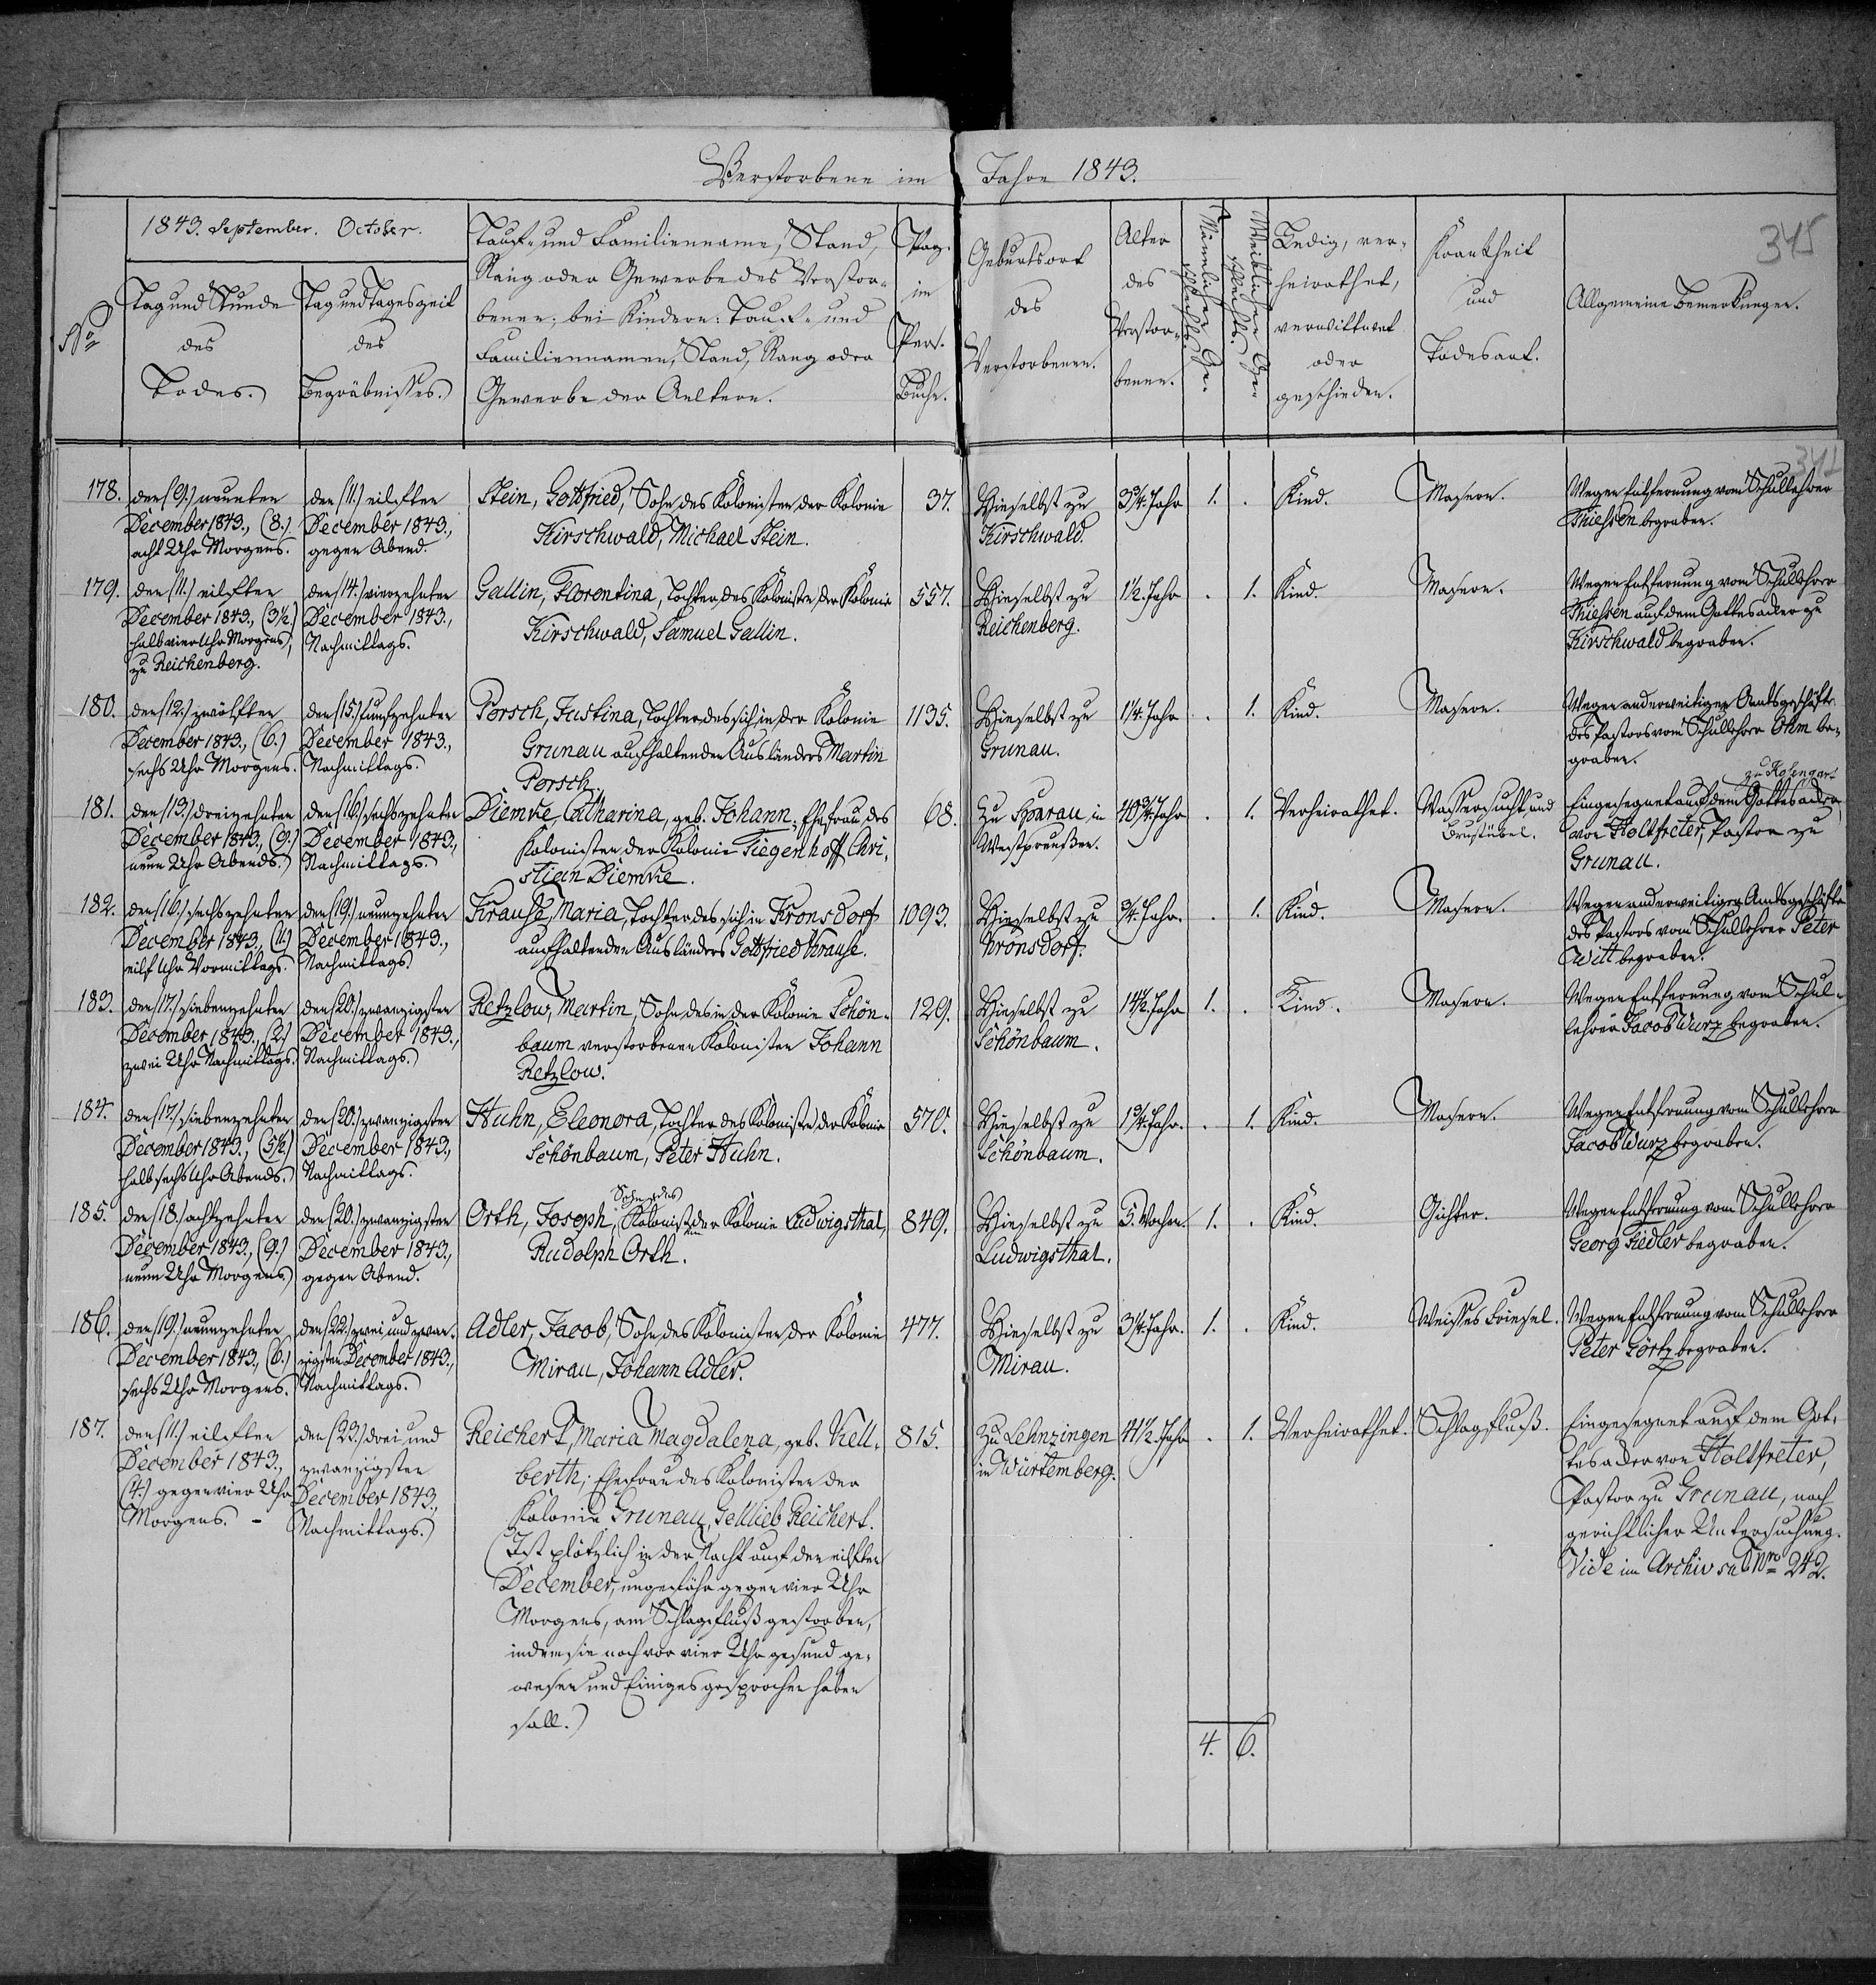 Verstorbene im Jahre 1843.
345
1843. September. October.
No
Tag und Stunde
des
Todes.
Tag und Tageszeit
des
Begräbnisses.
Tauf- und Familienname, Stand,
Rang oder Gewerbe des Verstor-
benen; bei Kindern: Tauf- und
Familiennamen, Stand, Rang oder
Gewerbe der Aeltern.
Pag.
im
Pers.
Buche.
Geburtsort
des
Verstorbenen.
Alter
des
Verstor-
benen.
Männlicher Ge-
schlechts.
Weiblicher Ge-
schlechts.
Ledig, ver-
heirathet,
verwittwet
oder
geschieden.
Krankheit
und
Todesart.
Allgemeine Bemerkungen.
341
178.
den (9.) neunten
December 1843., (8.)
acht Uhr Morgens.
den (11.) eilften
December 1843.,
gegen Abend.
Stein, Gottfried, Sohn des Kolonisten der Kolonie
Kirschwald, Michael Stein.
37.
Hieselbst zu
Kirschwald.
3¾. Jahr
1.
.
Kind.
Masern.
Wegen Entfernung vom Schullehrer
Thiessen begraben.
179.
den (11.) eilften
December 1843., (3½.)
halb vier Uhr Morgens,
zu Reichenberg.
den (14.) vierzehnten
December 1843.,
Nachmittags.
Gallin, Florentina, Tochter des Kolonisten der Kolonie
Kirschwald, Samuel Gallin.
557.
Hieselbst zu
Reichenberg.
1½. Jahr
.
1.
Kind.
Masern.
Wegen Entfernung vom Schullehrer
Thiessen auf dem Gottesacker zu
Kirschwald begraben.
180.
den (12.) zwölften
December 1843., (6.)
sechs Uhr Morgens.
den (15.) funfzehnten
December 1843.,
Nachmittags.
Porsch, Justina, Tochter des sich in der Kolonie
Grunau aufhaltenden Ausländers Martin
Porsch.
1135.
Hieselbst zu
Grunau.
1¼. Jahr
.
1.
Kind.
Masern.
Wegen anderweitiger Amtsgeschäfte
des Pastors vom Schullehrer Ohm be-
graben.
181.
den (13.) dreizehnten
December 1843., (9.)
neun Uhr Abends.
den (16.) sechszehnten
December 1843.,
Nachmittags.
Diemke, Catharina, geb. Johann, Ehefrau des
Kolonisten der Kolonie Tiegenhoff, Chri-
stian Diemke.
68.
Zu Sparau in
Westpreußen.
40¾. Jahr
.
1.
Verheirathet.
Wassersucht und
Brustübel.
zu Rosengart
Eingesegnet auf dem Gottesacker
von Holtfreter, Pastor zu
Grunau.
182.
den (16.) sechszehnten
December 1843., (11.)
eilf Uhr Vormittags.
den (19.) neunzehnten
December 1843.,
Nachmittags.
Krause, Maria, Tochter des sich in Kronsdorf
aufhaltenden Ausländers Gottfried Krause.
1093.
Hieselbst zu
Kronsdorf.
¾. Jahr.
.
1.
Kind.
Masern.
Wegen anderweitiger Amtsgeschäfte
des Pastors vom Schullehrer Peter
Witt begraben.
183.
den (17.) siebenzehnten
December 1843., (2.)
zwei Uhr Nachmittags.
den (20.) zwanzigsten
December 1843.,
Nachmittags.
Retzlow, Martin, Sohn des in der Kolonie Schön-
baum verstorbenen Kolonisten Johann
Retzlow.
129.
Hieselbst zu
Schönbaum.
14½. Jahr
1.
.
Kind.
Masern.
Wegen Entfernung vom Schul-
lehrer Jacob Wurz begraben.
184.
den (17.) siebenzehnten
December 1843., (5½.)
halb sechs Uhr Abends.
den (20.) zwanzigsten
December 1843.,
Nachmittags.
Huhn, Eleonora, Tochter des Kolonisten der Kolonie
Schönbaum, Peter Huhn.
570.
Hieselbst zu
Schönbaum.
1¾. Jahr.
.
1.
Kind.
Masern.
Wegen Entfernung vom Schullehrer
Jacob Wurz begraben.
185.
den (18.) achtzehnten
December 1843., (9.)
neun Uhr Morgens.
den (20.) zwanzigsten
December 1843.,
gegen Abend.
Sohn des
Orth, Joseph, Kolonisten der Kolonie Ludwigsthal,
Rudolph Orth.
849.
Hieselbst zu
Ludwigsthal.
5. Wochen.
1.
.
Kind.
Gichter.
Wegen Entfernung vom Schullehrer
Georg Fiedler begraben.
186.
den (19.) neunzehnten
December 1843., (6.)
sechs Uhr Morgens.
den (22.) zwei und zwan-
zigsten December 1843.,
Nachmittags.
Adler, Jacob, Sohn des Kolonisten der Kolonie
Mirau, Johann Adler.
477.
Hieselbst zu
Mirau.
3¼. Jahr.
1.
.
Kind.
Weisses Friesel.
Wegen Entfernung vom Schullehrer
Peter Görtz begraben.
187.
den (11.) eilften
December 1843.,
(4.) gegen vier Uhr
Morgens. -
den (23.) drei und
zwanzigsten
December 1843.,
Nachmittags.
Reichert, Maria Magdalena, geb. Kell-
berth, Ehefrau des Kolonisten der
Kolonie Grunau, Gottlieb Reichert.
(Ist plötzlich in der Nacht auf den eilften
December, ungefähr gegen vier Uhr
Morgens, am Schlagfluß gestorben,
indem sie noch vor vier Uhr gesund ge-
wesen und Einiges gesprochen haben
soll.)
815.
Zu Lehnzingen
in Würtemberg.
41½. Jahr
.
1.
Verheirathet.
Schlagfluß.
Eingesegnet auf dem Got-
tesacker von Holtfreter,
Pastor zu Grunau, nach
gerichtlicher Untersuchung.
Vide im Archiv sub Nro 242.
4.
6.